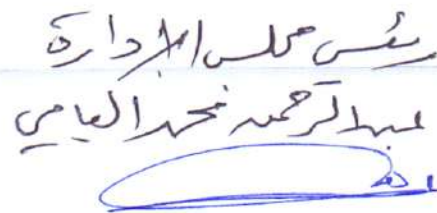 رئيس مجلس الإدارة
عبدالرحمن محمد اليامي